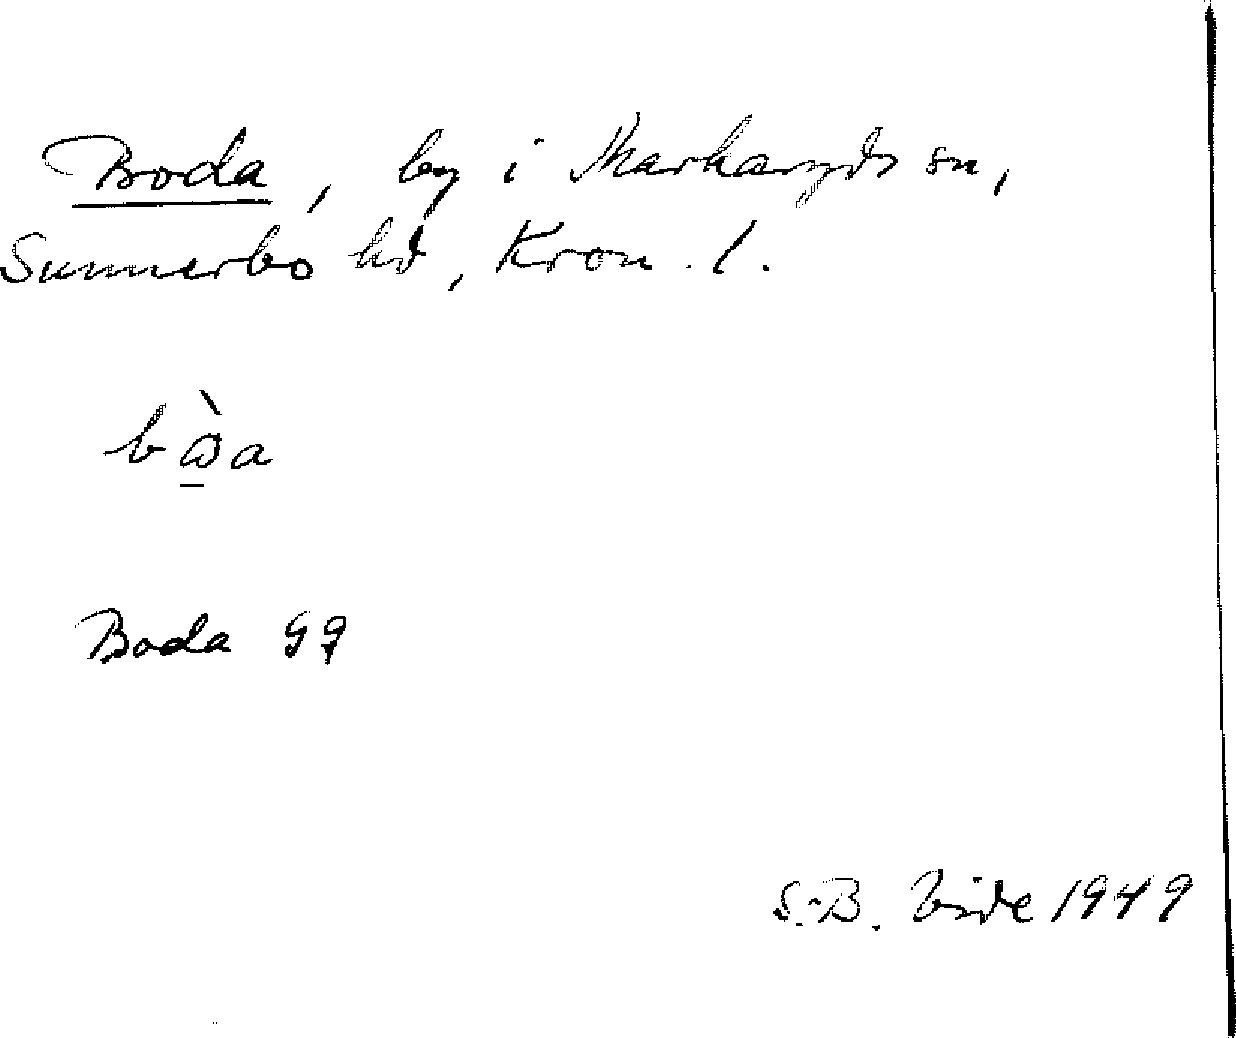 Boda, by i Markaryds sn,
Sunnerbo hd, Kron. l.
Boda GG
S.-B. Vide 1949